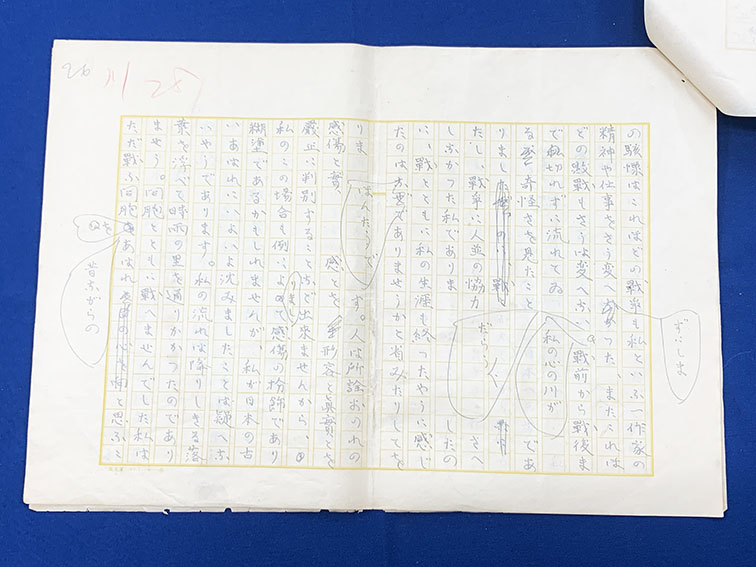 26
28
の駭慄はこれほどの戦争も私といふ一作家の
精神や仕事をさう変へなかつた、またこれほ
どの敗戦もさうは変へない、戦前から戦後ま
ずにしま
で切れずに流れてゐ
私の心の川が
る奇怪さを見たこと であ
りました
たし、戦争に人並の協力 だらう さへ
しなかつた私でありま したの
に、戦とともに私の生涯も終つたやうに感じ
たのは大変でありませうかと省みたりしてを
りま す。人は所詮おのれの
ほんたうで
感傷と実 感とを 形容と真実とを
厳正に判別することなど出来ませんから、
私のこの場合も例によつて感傷の扮飾であり
りまし
糊塗であるかもしれませんが、私が日本の古
いあはれにいよいよ沈みましたことは疑へな
いやうであります。私の流れは降りしきる落
葉を浮べて時雨の里を通りかかつたのであり
ませう。同胞とともに戦へませんでした私は
ただ戦ふ同胞 あはれ と思ふこ
のを
昔ながらの